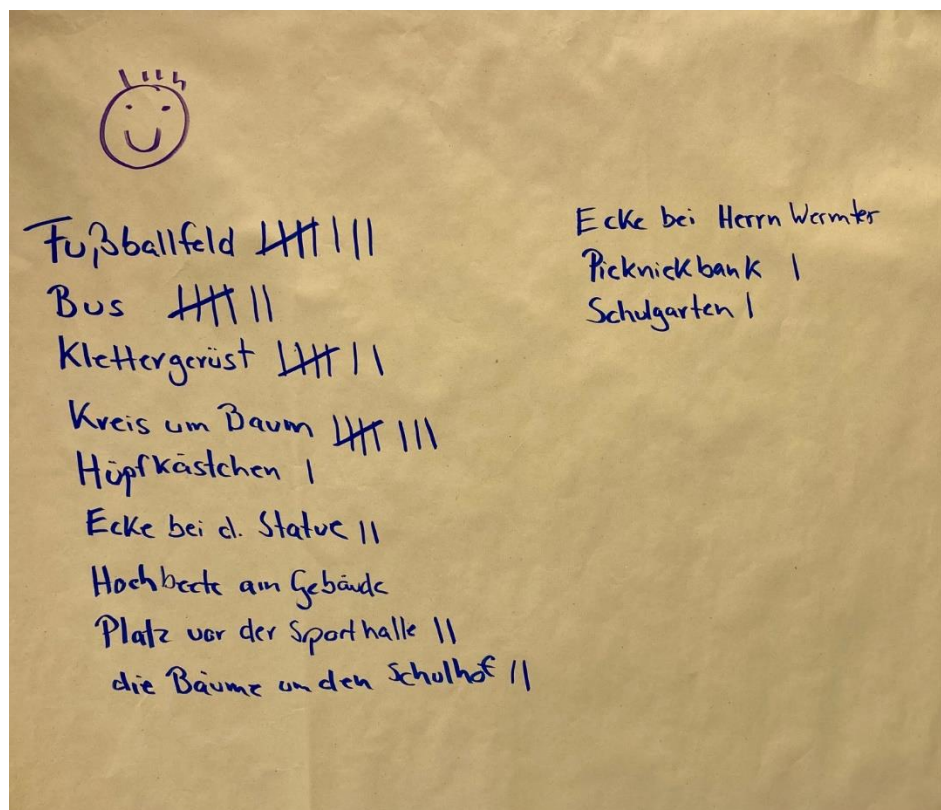 Fußballfeld |||| |||
Bus |||| ||
Klettergerüst |||| ||
Kreis um Baum |||| |||
Hüpfkästchen |
Ecke bei d. Statue ||
Hochbeete am Gebäude
Platz vor der Sporthalle ||
die Bäume um den Schulhof ||
Ecke bei Herrn Wermter
Picknickbank |
Schulgarten |